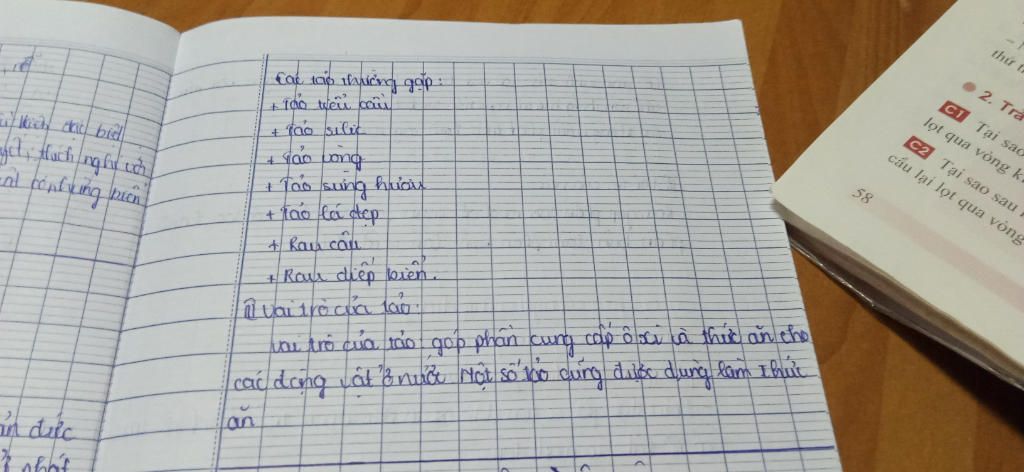 Các tảo thường gặp:
+ Tảo tiểu cầu
+ Tảo silic
+ Tảo vòng
+ Tảo sừng hươu
+ Tảo lá dẹp
+ Rau câu
+ Rau diếp biển.
Vai trò của tảo:
Vai trò của tảo góp phần cung cấp ôxi và thức ăn cho
các động vật ở nước Một số tảo cũng được dùng làm thức
ăn
biệt
được
nhất
2. Tra
C1 Tại sao
lọt qua vòng k
C2 Tại sao sau
cầu lại lọt qua vòng
58